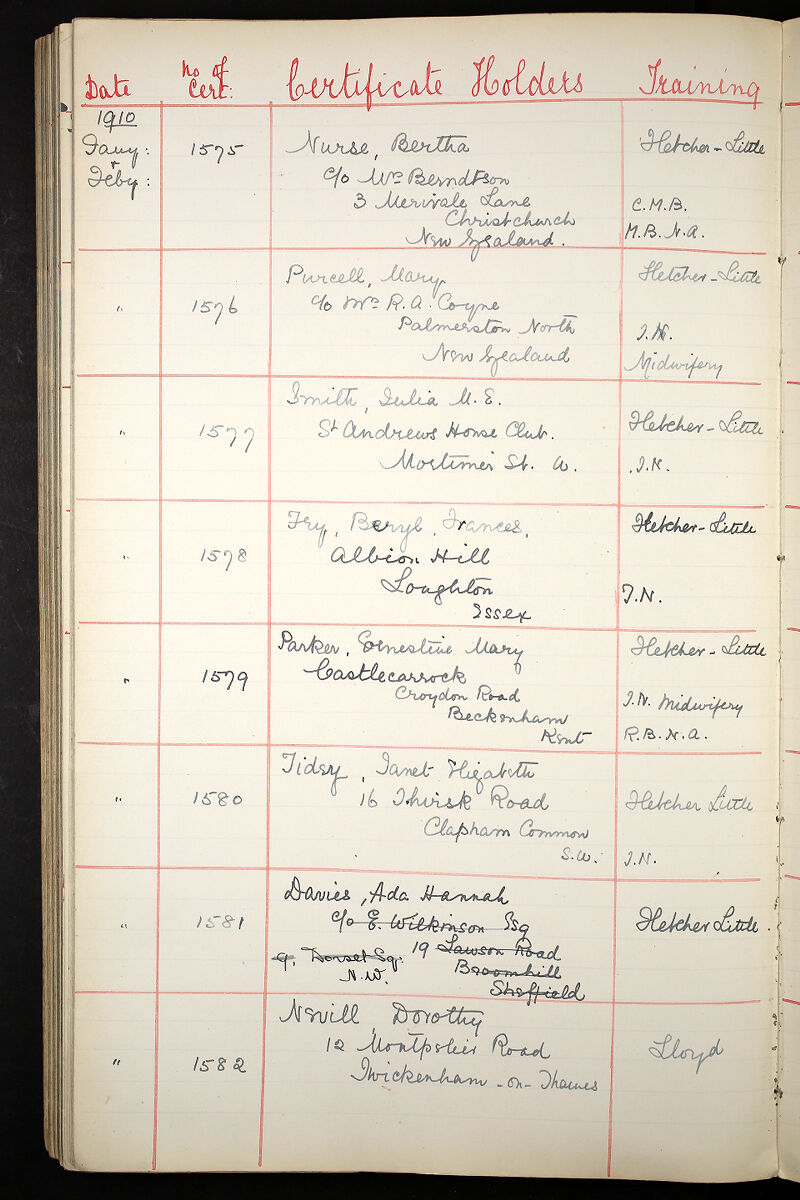 Date No of Cert: Certificate Holders Training
1910
Jany: 1575 Nurse, Bertha Fletcher-Little
+
Feby: c/o Mrs Berndtson
3 Merivale Lane C.M.B.
Christchurch
New Zealand. M.B.N.A.
Purcell, Mary Fletcher-Little
" 1576 c/o Mrs R.A. Coyne
Palmerston North T.N.
New Zealand Midwifery
Smith, Julia M.E.
" 1577 St Andrews House Club. Fletcher-Little
Mortimer St. W. T.N.
Fry, Beryl, Frances, Fletcher-Little
" 1578 Albion Hill
Loughton T.N.
Essex
Parker, Ernestine Mary Fletcher-Little
" 1579 Castlecarrock
Croydon Road T.N. Midwifery
Beckenham
Kent R.B.N.A.
Tidey, Janet Elizabeth
" 1580 16 Thirsk Road Fletcher Little
Clapham Common
S.W. T.N.
Davies, Ada Hannah
" 1581 c/o E. Wilkinson Esq Fletcher Little.
9, Dorset Sq: 19 Lawson Road
N.W. Broomhill
Sheffield
Nevill, Dorothy
" 1582 12 Montpelier Road Lloyd
Twickenham-on-Thames